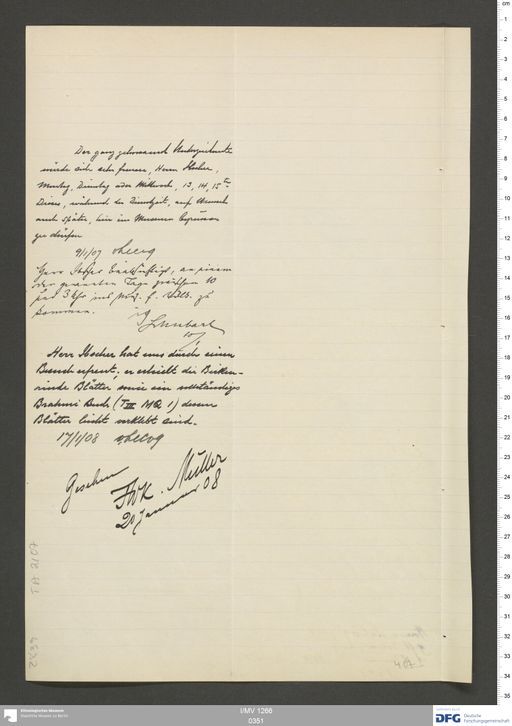 Der ganz gehorsamst Unterzeichnete
würde sich sehr freuen, Herrn Hocher,
Montag, Dienstag oder Mittwoch, 13, 14, 15ten
Dieses, während der Dienstzeit, auf Wunsch
auch später, hier im Museum begrüssen
zu dürfen
9/1/07 vLecoq
Herr beabsichtigt, an einem
der genannten Tage zwischen 10
und 3 Uhr ins Mus. f. Völk. zu
kommen.
Herr Hocher hat uns durch einen
Besuch erfreut; er erhielt die Birken-
rinde Blätter, sowie ein vollständiges
Brahmi Buch (T III MQ 1) dessen
Blätter leicht verklebt sind.
17/1/08 vLecoq
Gesehen
FWK. Müller
20 Januar 08
TA 2107
467
Ethnologisches Museum
Staatliche Museen zu Berlin
I/MV 1266
0351
DFG Deutsche
Forschungsgemeinschaft
cm
1
2
3
4
5
6
7
8
9
10
11
12
13
14
15
16
17
18
19
20
21
22
23
24
25
26
27
28
29
30
31
32
33
34
35